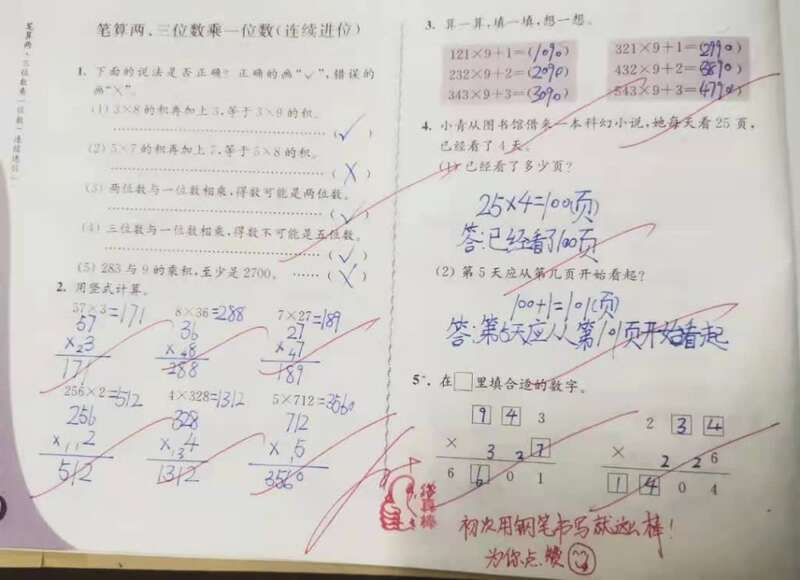 笔算两、三位数乘一位数(连续进位)
笔算两、三位数乘一位数(连续进位)
1. 下面的说法是否正确？正确的画“✓”,错误的
画“×”。
(1) 3×8的积再加上3,等于3×9的积。
(✓)
(2) 5×7的积再加上7,等于5×8的积。
(X)
(3) 两位数与一位数相乘,得数可能是两位数。
(✓)
(4) 三位数与一位数相乘,得数不可能是五位数。
(✓)
(5) 283与9的乘积,至少是2700。 (X)
2. 用竖式计算。
57×3=171 8×36=288 7×27=189
57 36 27
×23 ×48 ×47
171 288 189
256×2=512 4×328=1312 5×712=3560
256 328 712
×112 ×134 ×15
512 1312 3560
3. 算一算,填一填,想一想。
121×9+1=(1090) 321×9+1=(2890)
232×9+2=(2090) 432×9+2=(3890)
343×9+3=(3090) 543×9+3=(4890)
4. 小青从图书馆借来一本科幻小说,她每天看25页,
已经看了4天。
(1) 已经看了多少页?
25×4=100(页)
答:已经看了100页
(2) 第5天应从第几页开始看起?
100+1=101(页)
答:第5天应从第101页开始看起
5*. 在□里填合适的数字。
9 4 3 2 3 4
× 3 2 7 × 2 2 6
6 6 0 1 1 4 0 4
你真棒
初次用钢笔书写就这么棒!
为你点赞